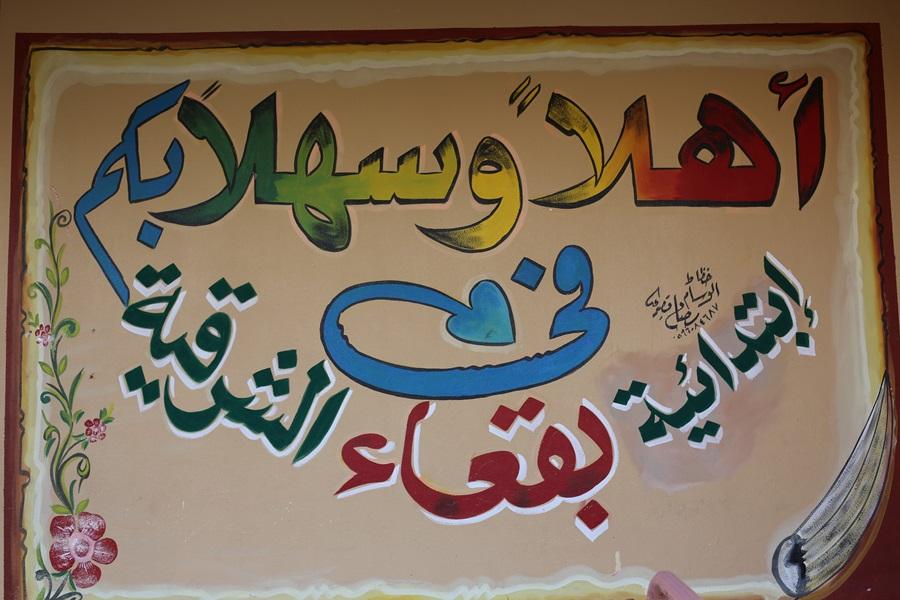 أهلاً وسهلاً بكم
في
إبتدائية بقعاء الشرقية
خطاط